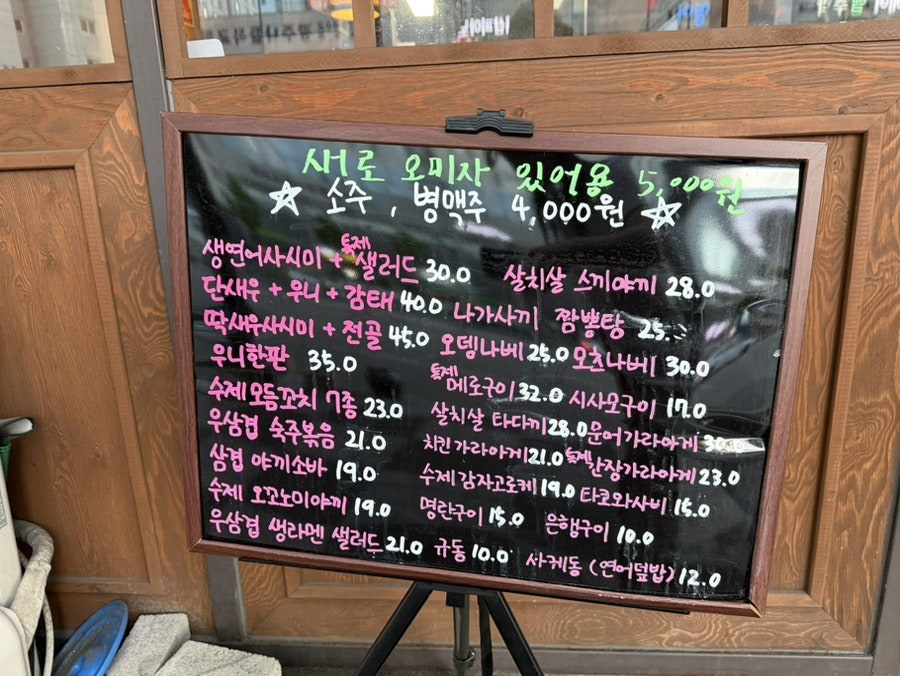 새로 오미자 있어용 5,000원
☆ 소주, 병맥주 4,000원 ☆
생연어사시미 + 훈제 샐러드 30.0
단새우 + 우니 + 감태 40.0
딱새우사시미 + 전골 45.0
우니한판 35.0
수제 모듬꼬치 7종 23.0
우삼겹 숙주볶음 21.0
삼겹 야끼소바 19.0
수제 오꼬노미야끼 19.0
우삼겹 생라멘 샐러드 21.0
살치살 스끼야끼 28.0
나가사끼 짬뽕탕 25.
오뎅나베 25.0 오츠나베 30.0
메로구이 32.0 시사모구이 17.0
살치살 타다끼 28.0 문어가라아게 30.0
치킨가라아게 21.0 간장가라아게 23.0
수제 감자고로케 19.0 타코와사비 15.0
명란구이 15.0 은행구이 10.0
규동 10.0 사케동 (연어덮밥) 12.0